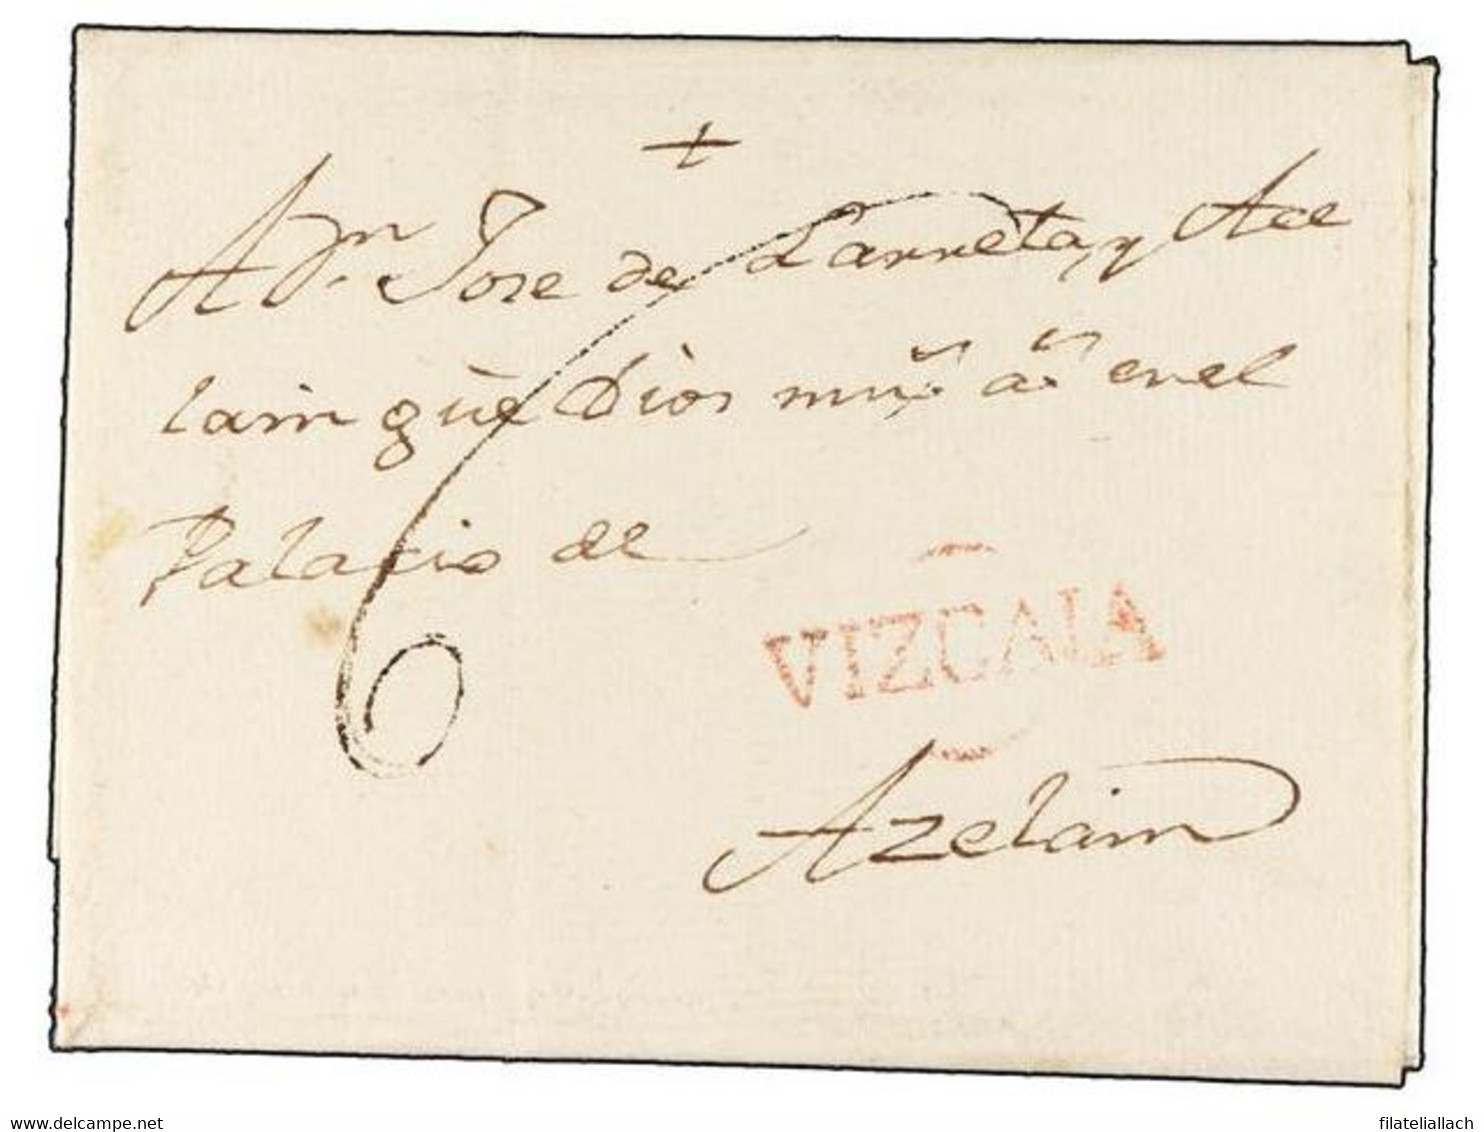 +
A Dn. Jose de Larreta, y Ace
lain que Dios mus. as. en el
Palacio de
6
VIZCAIA
Azelain
www.delcampe.net
filatelialIach